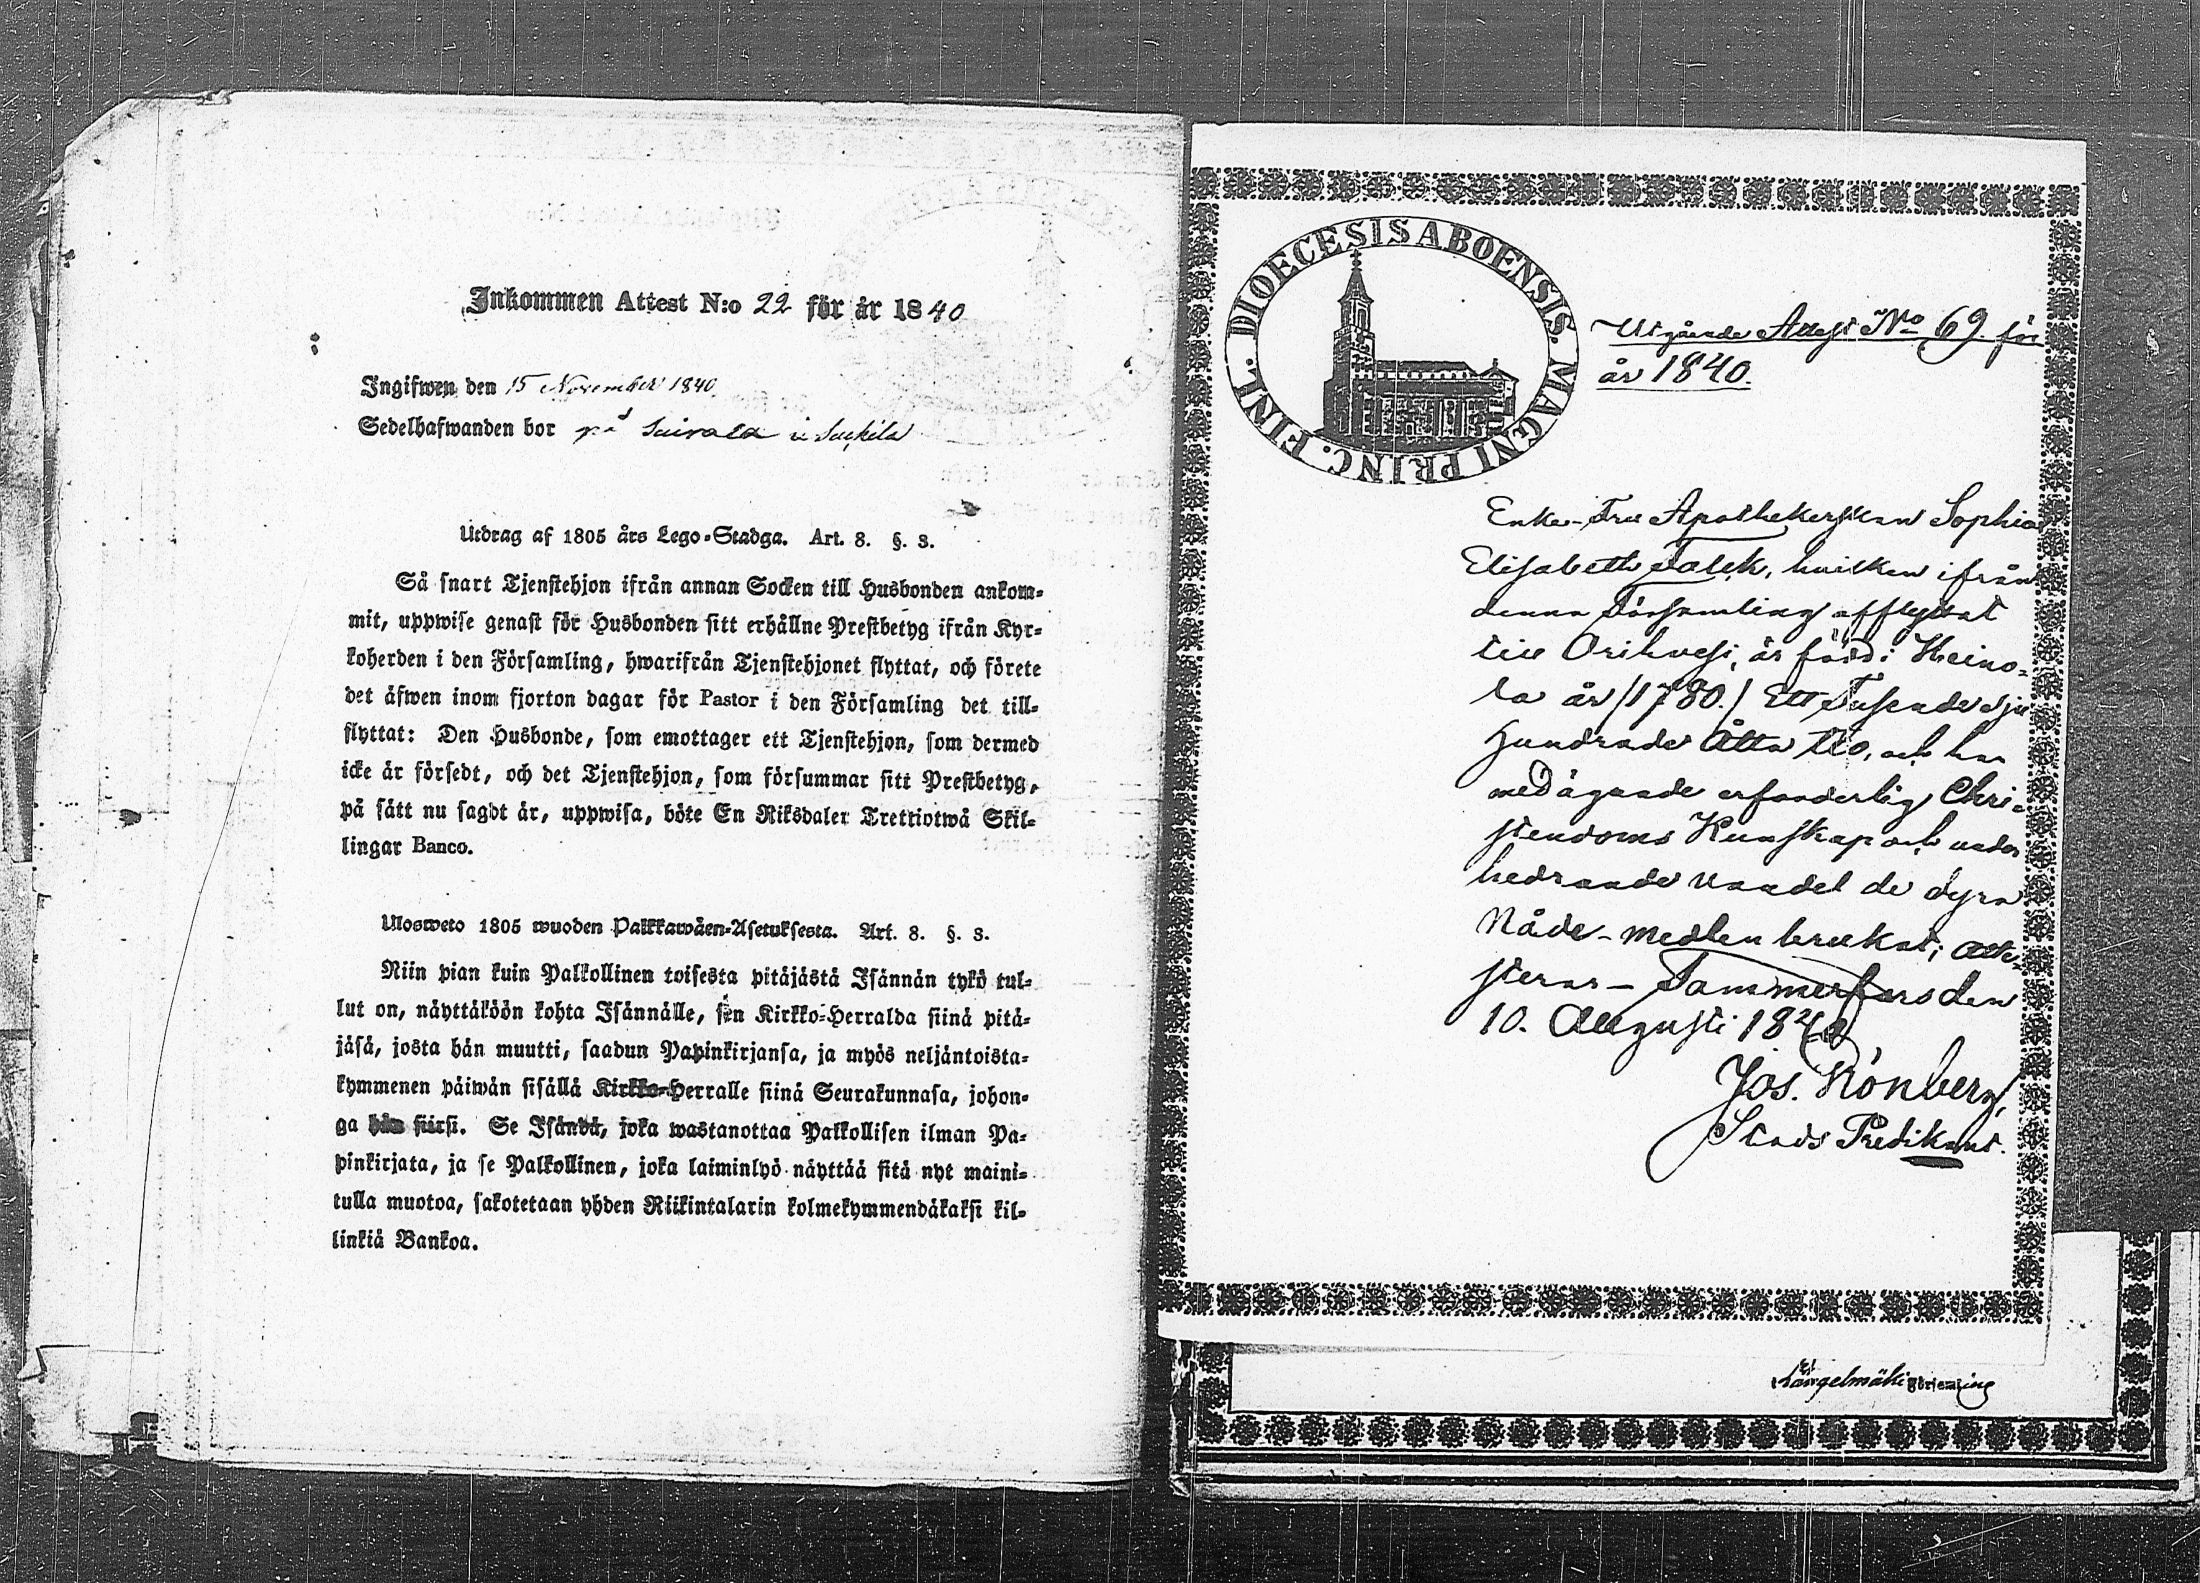 Inkommen Attest N:o 22 för år 1840
Ingifwen den 15 November 1840.
Sedelhafwanden bor på
Utdrag af 1805 års Lego-Stadga. Art. 8. §. 3.
Så snart Tjenstehjon ifrån annan Socken till Husbonden ankom-
mit, uppwise genast för Husbonden sitt erhållne Prestbetyg ifrån Kyr-
koherden i den Församling, hwarifrån Tjenstehjonet flyttat, och förete
det äfwen inom fjorton dagar för Pastor i den Församling det till-
flyttat: Den Husbonde, som emottager ett Tjenstehjon, som dermed
icke är försedt, och det Tjenstehjon, som försummar sitt Prestbetyg,
på sätt nu sagdt är, uppwisa, böte En Riksdaler Trettiotwå Skil-
lingar Banco.
Ulosweto 1805 wuoden Palkkawäen-Asetuksesta. Art. 8. §. 3.
Niin pian kuin Palkollinen toisesta pitäjästä Isännän tykö tul-
lut on, näyttäköön kohta Isännälle, sen Kirkko-Herralda siinä pitä-
jäsä, josta hän muutti, saadun Papinkirjansa, ja myös neljäntoista-
kymmenen päiwän sisällä Kirkko-Herralle siinä Seurakunnasa, johon-
ga hän siirsi. Se Isändä, joka wastanottaa Palkollisen ilman Pa-
pinkirjata, ja se Palkollinen, joka laiminlyö näyttää sitä nyt maini-
tulla muotoa, sakotetaan yhden Riikintalarin kolmekymmendäkaksi kil-
linkiä Bankoa.
DIOECESIS ABOENSIS. MAGNI PRINC. FINL.
Utgående Attest No 69. för
år 1840.
Enke-Fru Apothekerskan Sophia
Elisabeth Falck, hvilken ifrån
denna Församling afflyttat
till Orihvesi, är född i Heino-
la år /1780./ Ett Tusende sju
Hundrade Åtta tio, och har
med ägande erforderlig Chri-
stendoms Kunskap och under
hedrande vandel de dyra
Nåde-medlen brukat; atte-
sterar – Tammerfors den
10. Augusti 1840
Jos. Rönberg,
Stads Predikant.
Längelmäki Församling